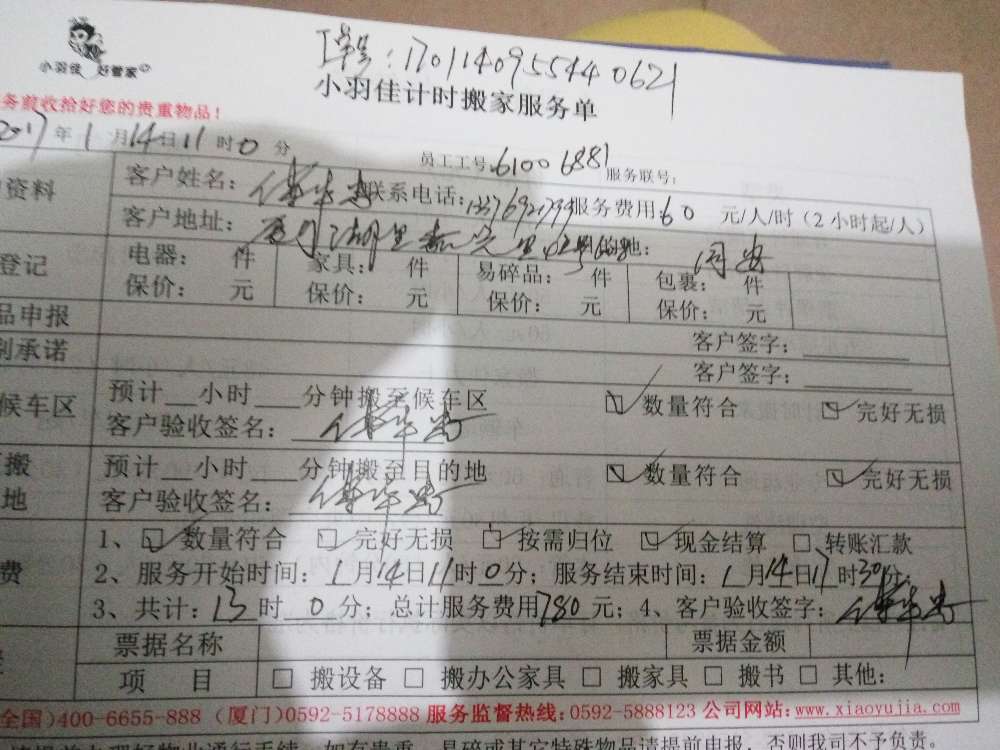 工单号：1701140955440621
小羽佳 好管家
小羽佳计时搬家服务单
务前收拾好您的贵重物品！
2017年1月14日11时0分 员工工号：61006881 服务联号：
资料 客户姓名： 联系电话： 服务费用：60 元/人/时（2小时起/人）
客户地址： 同安
登记 电器： 件 家具： 件 易碎品： 件 包裹： 件
保价： 元 保价： 元 保价： 元 保价： 元
品申报 客户签字：
别承诺 客户签字：
候车区 预计__小时___分钟搬至候车区 数量符合 完好无损
客户验收签名：
搬 预计__小时___分钟搬至目的地 数量符合 完好无损
地 客户验收签名：
1、 数量符合 完好无损 按需归位 现金结算 转账汇款
费 2、服务开始时间：1月14日11时0分；服务结束时间：1月14日17时30分；
3、共计：13时0分；总计服务费用780元；4、客户验收签字：
票据名称 票据金额
项 目 搬设备 搬办公家具 搬家具 搬书 其他：
全国）400-6655-888（厦门）0592-5178888 服务监督热线：0592-5888123 公司网站：www.xiaoyujia.com